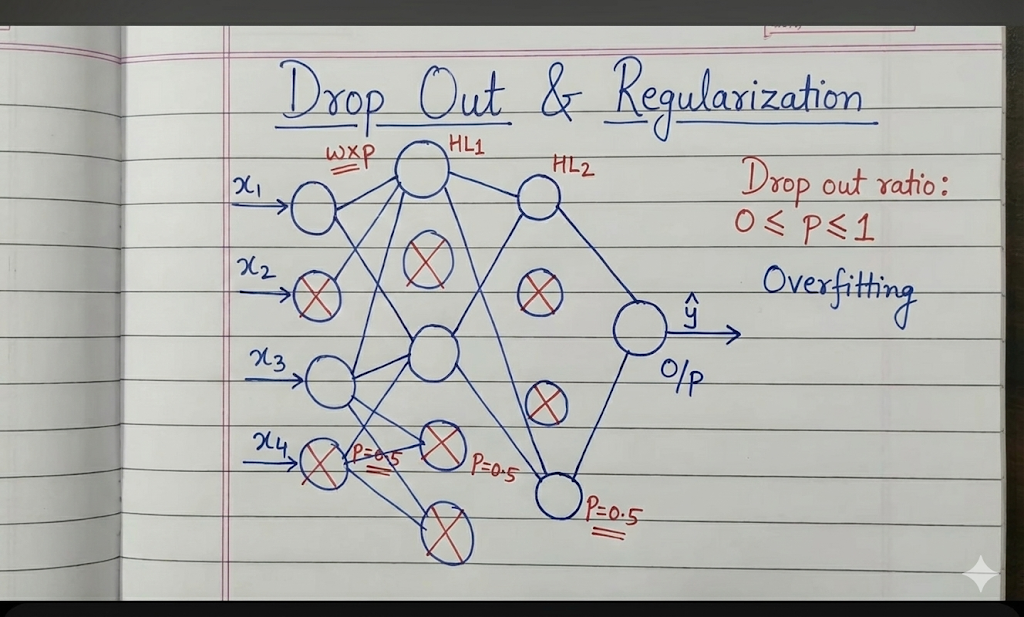 Drop Out & Regularization
w×p
HL1
HL2
x₁
x₂
x₃
x₄
P=0.5
P=0.5
P=0.5
ŷ
O/p
Drop out ratio:
0 ≤ p ≤ 1
Overfitting